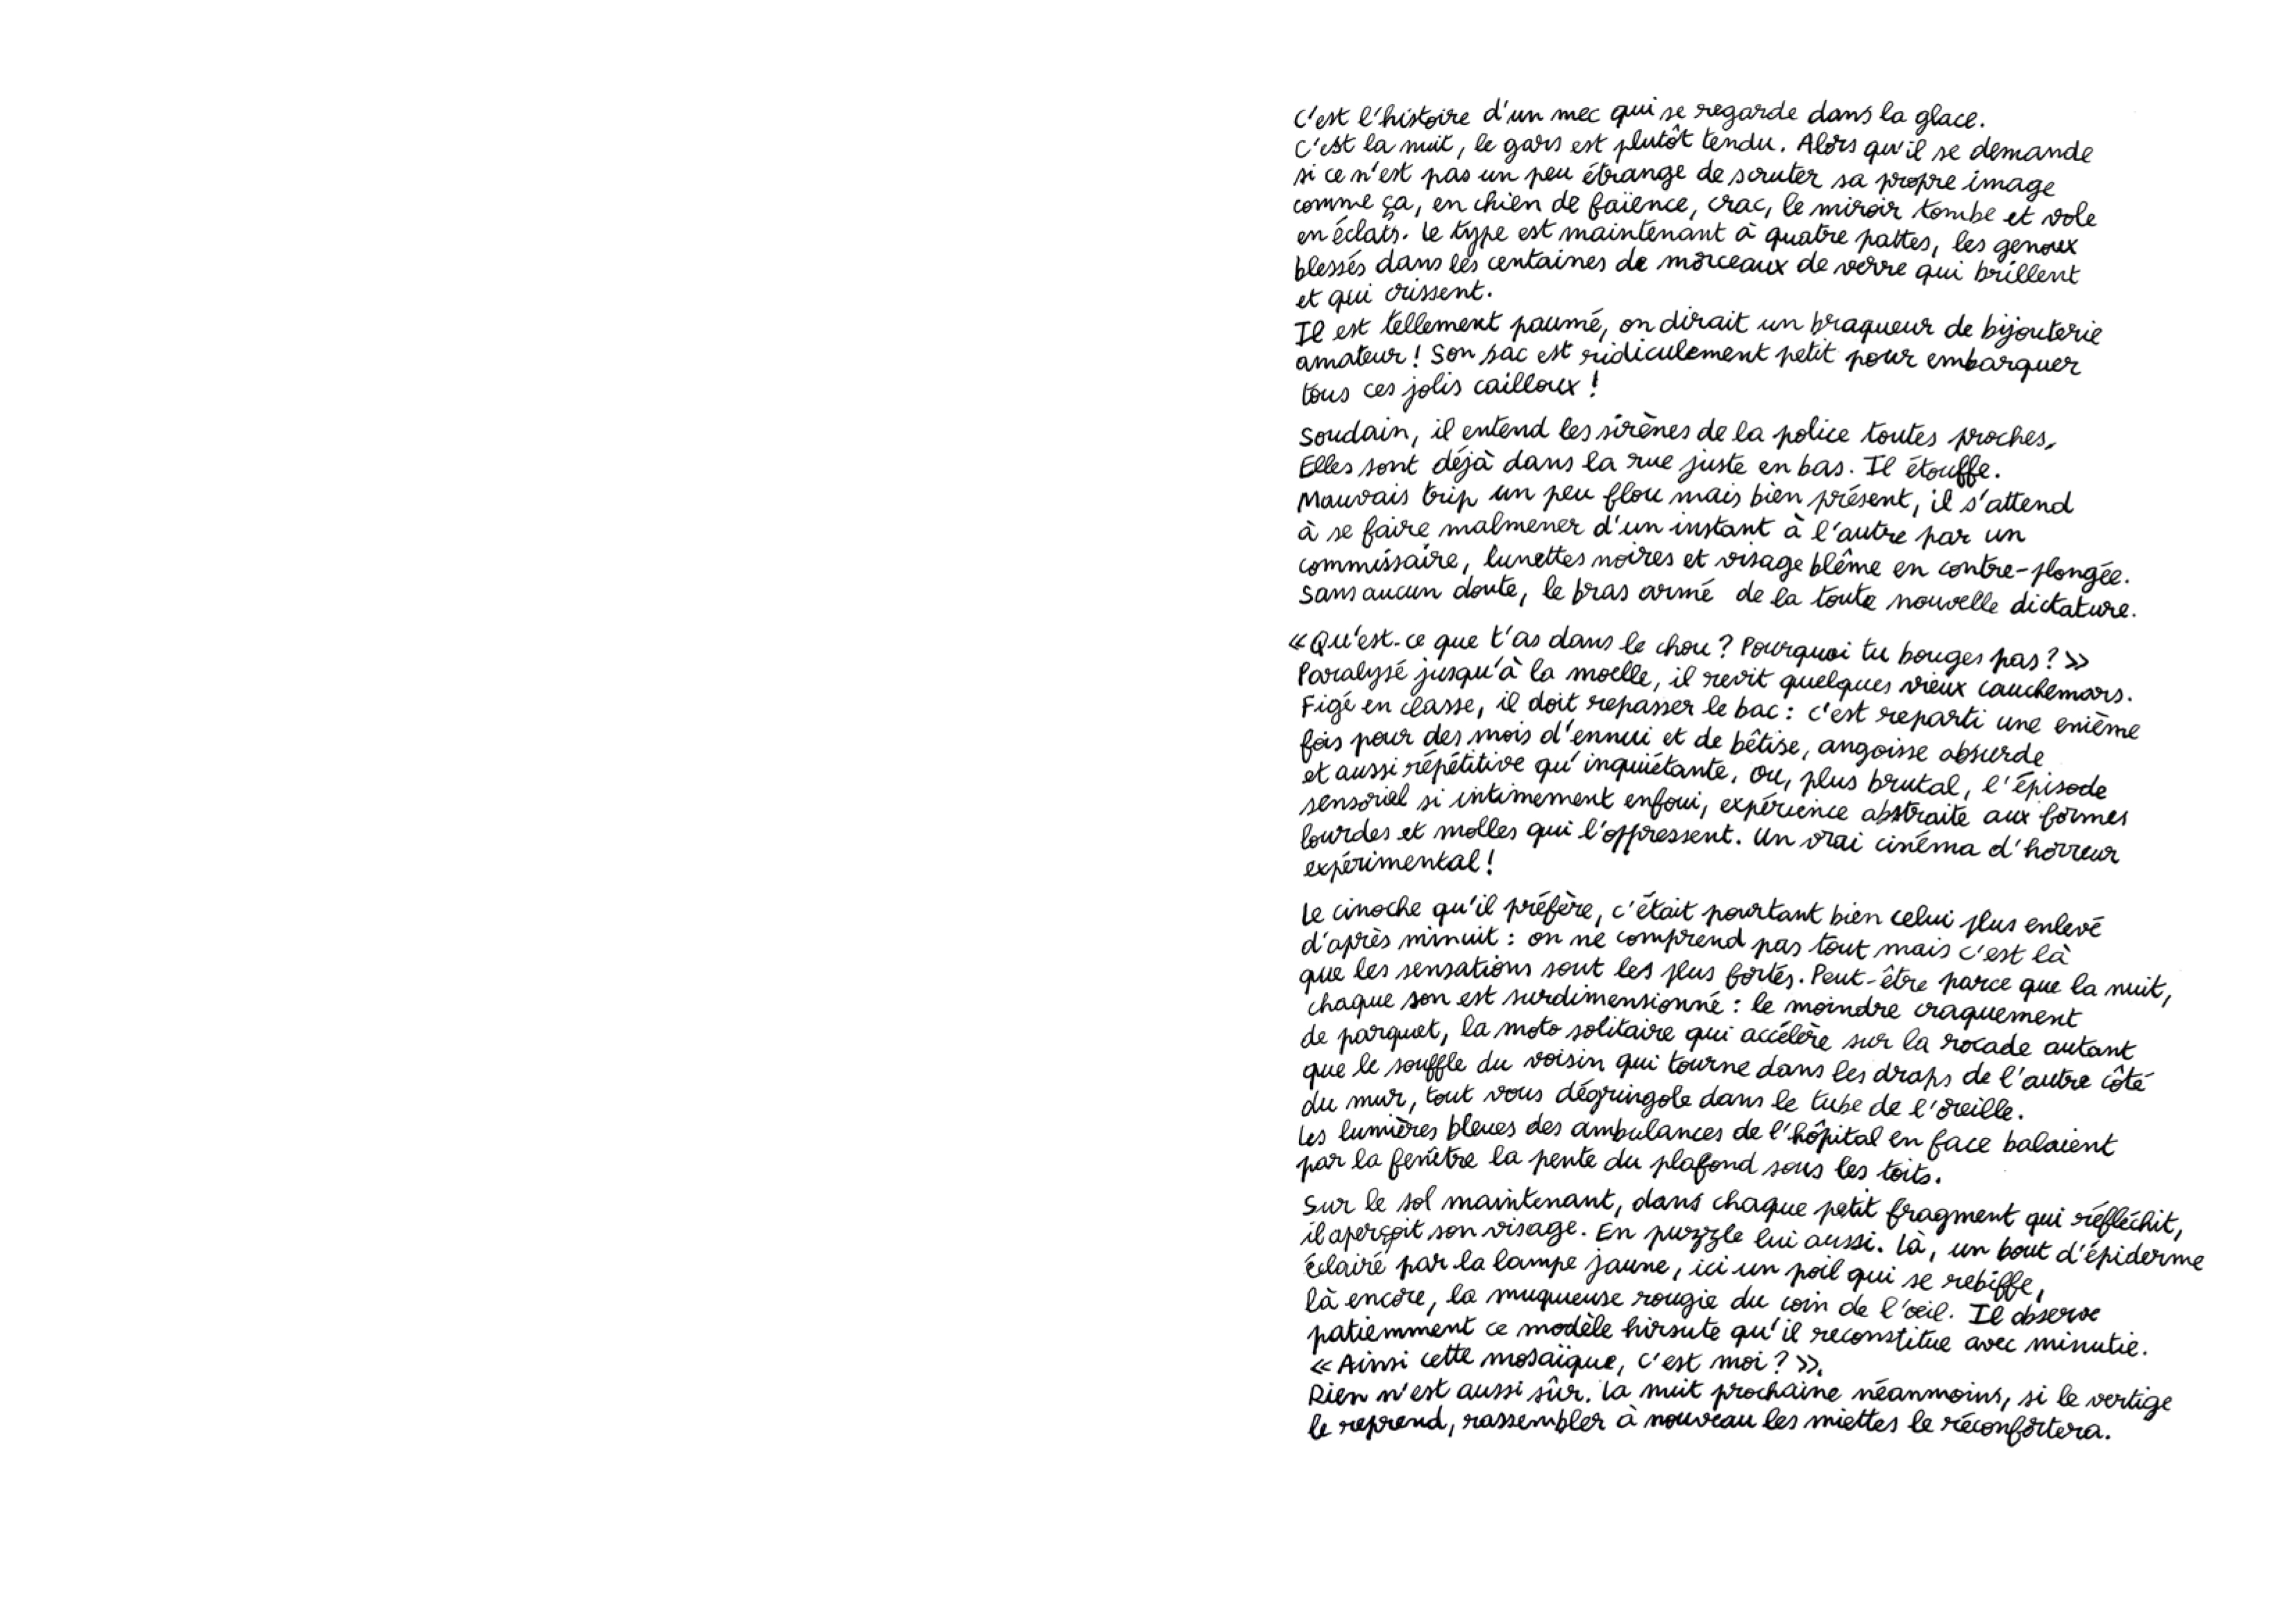 C'est l'histoire d'un mec qui se regarde dans la glace.
C'est la nuit, le gars est plutôt tendu. Alors qu'il se demande
si ce n'est pas un peu étrange de scruter sa propre image
comme ça, en chien de faïence, crac, le miroir tombe et vole
en éclats. Le type est maintenant à quatre pattes, les genoux
blessés dans les centaines de morceaux de verre qui brillent
et qui crissent.
Il est tellement paumé, on dirait un braqueur de bijouterie
amateur ! Son sac est ridiculement petit pour embarquer
tous ces jolis cailloux !
Soudain, il entend les sirènes de la police toutes proches.
Elles sont déjà dans la rue juste en bas. Il étouffe.
Mauvais trip un peu flou mais bien présent, il s'attend
à se faire malmener d'un instant à l'autre par un
commissaire, lunettes noires et visage blême en contre-plongée.
Sans aucun doute, le bras armé de la toute nouvelle dictature.
« Qu'est-ce que t'as dans le chou ? Pourquoi tu bouges pas ? »
Paralysé jusqu'à la moelle, il revit quelques vieux cauchemars.
Figé en classe, il doit repasser le bac : c'est reparti une enième
fois pour des mois d'ennui et de bêtise, angoisse absurde
et aussi répétitive qu'inquiétante, ou, plus brutal, l'épisode
sensoriel si intimement enfoui, expérience abstraite aux formes
lourdes et molles qui l'oppressent. Un vrai cinéma d'horreur
expérimental !
Le cinoche qu'il préfère, c'était pourtant bien celui plus enlevé
d'après minuit : on ne comprend pas tout mais c'est là
que les sensations sont les plus fortes. Peut-être parce que la nuit,
chaque son est surdimensionné : le moindre craquement
de parquet, la moto solitaire qui accélère sur la rocade autant
que le souffle du voisin qui tourne dans les draps de l'autre côté
du mur, tout vous dégringole dans le tube de l'oreille.
Les lumières bleues des ambulances de l'hôpital en face balaient
par la fenêtre la pente du plafond sous les toits.
Sur le sol maintenant, dans chaque petit fragment qui réfléchit,
il aperçoit son visage. En puzzle lui aussi. Là, un bout d'épiderme
éclairé par la lampe jaune, ici un poil qui se rebiffe,
là encore, la muqueuse rougie du coin de l'œil. Il observe
patiemment ce modèle hirsute qu'il reconstitue avec minutie.
« Ainsi cette mosaïque, c'est moi ? ».
Rien n'est aussi sûr. La nuit prochaine néanmoins, si le vertige
le reprend, rassembler à nouveau les miettes le réconfortera.